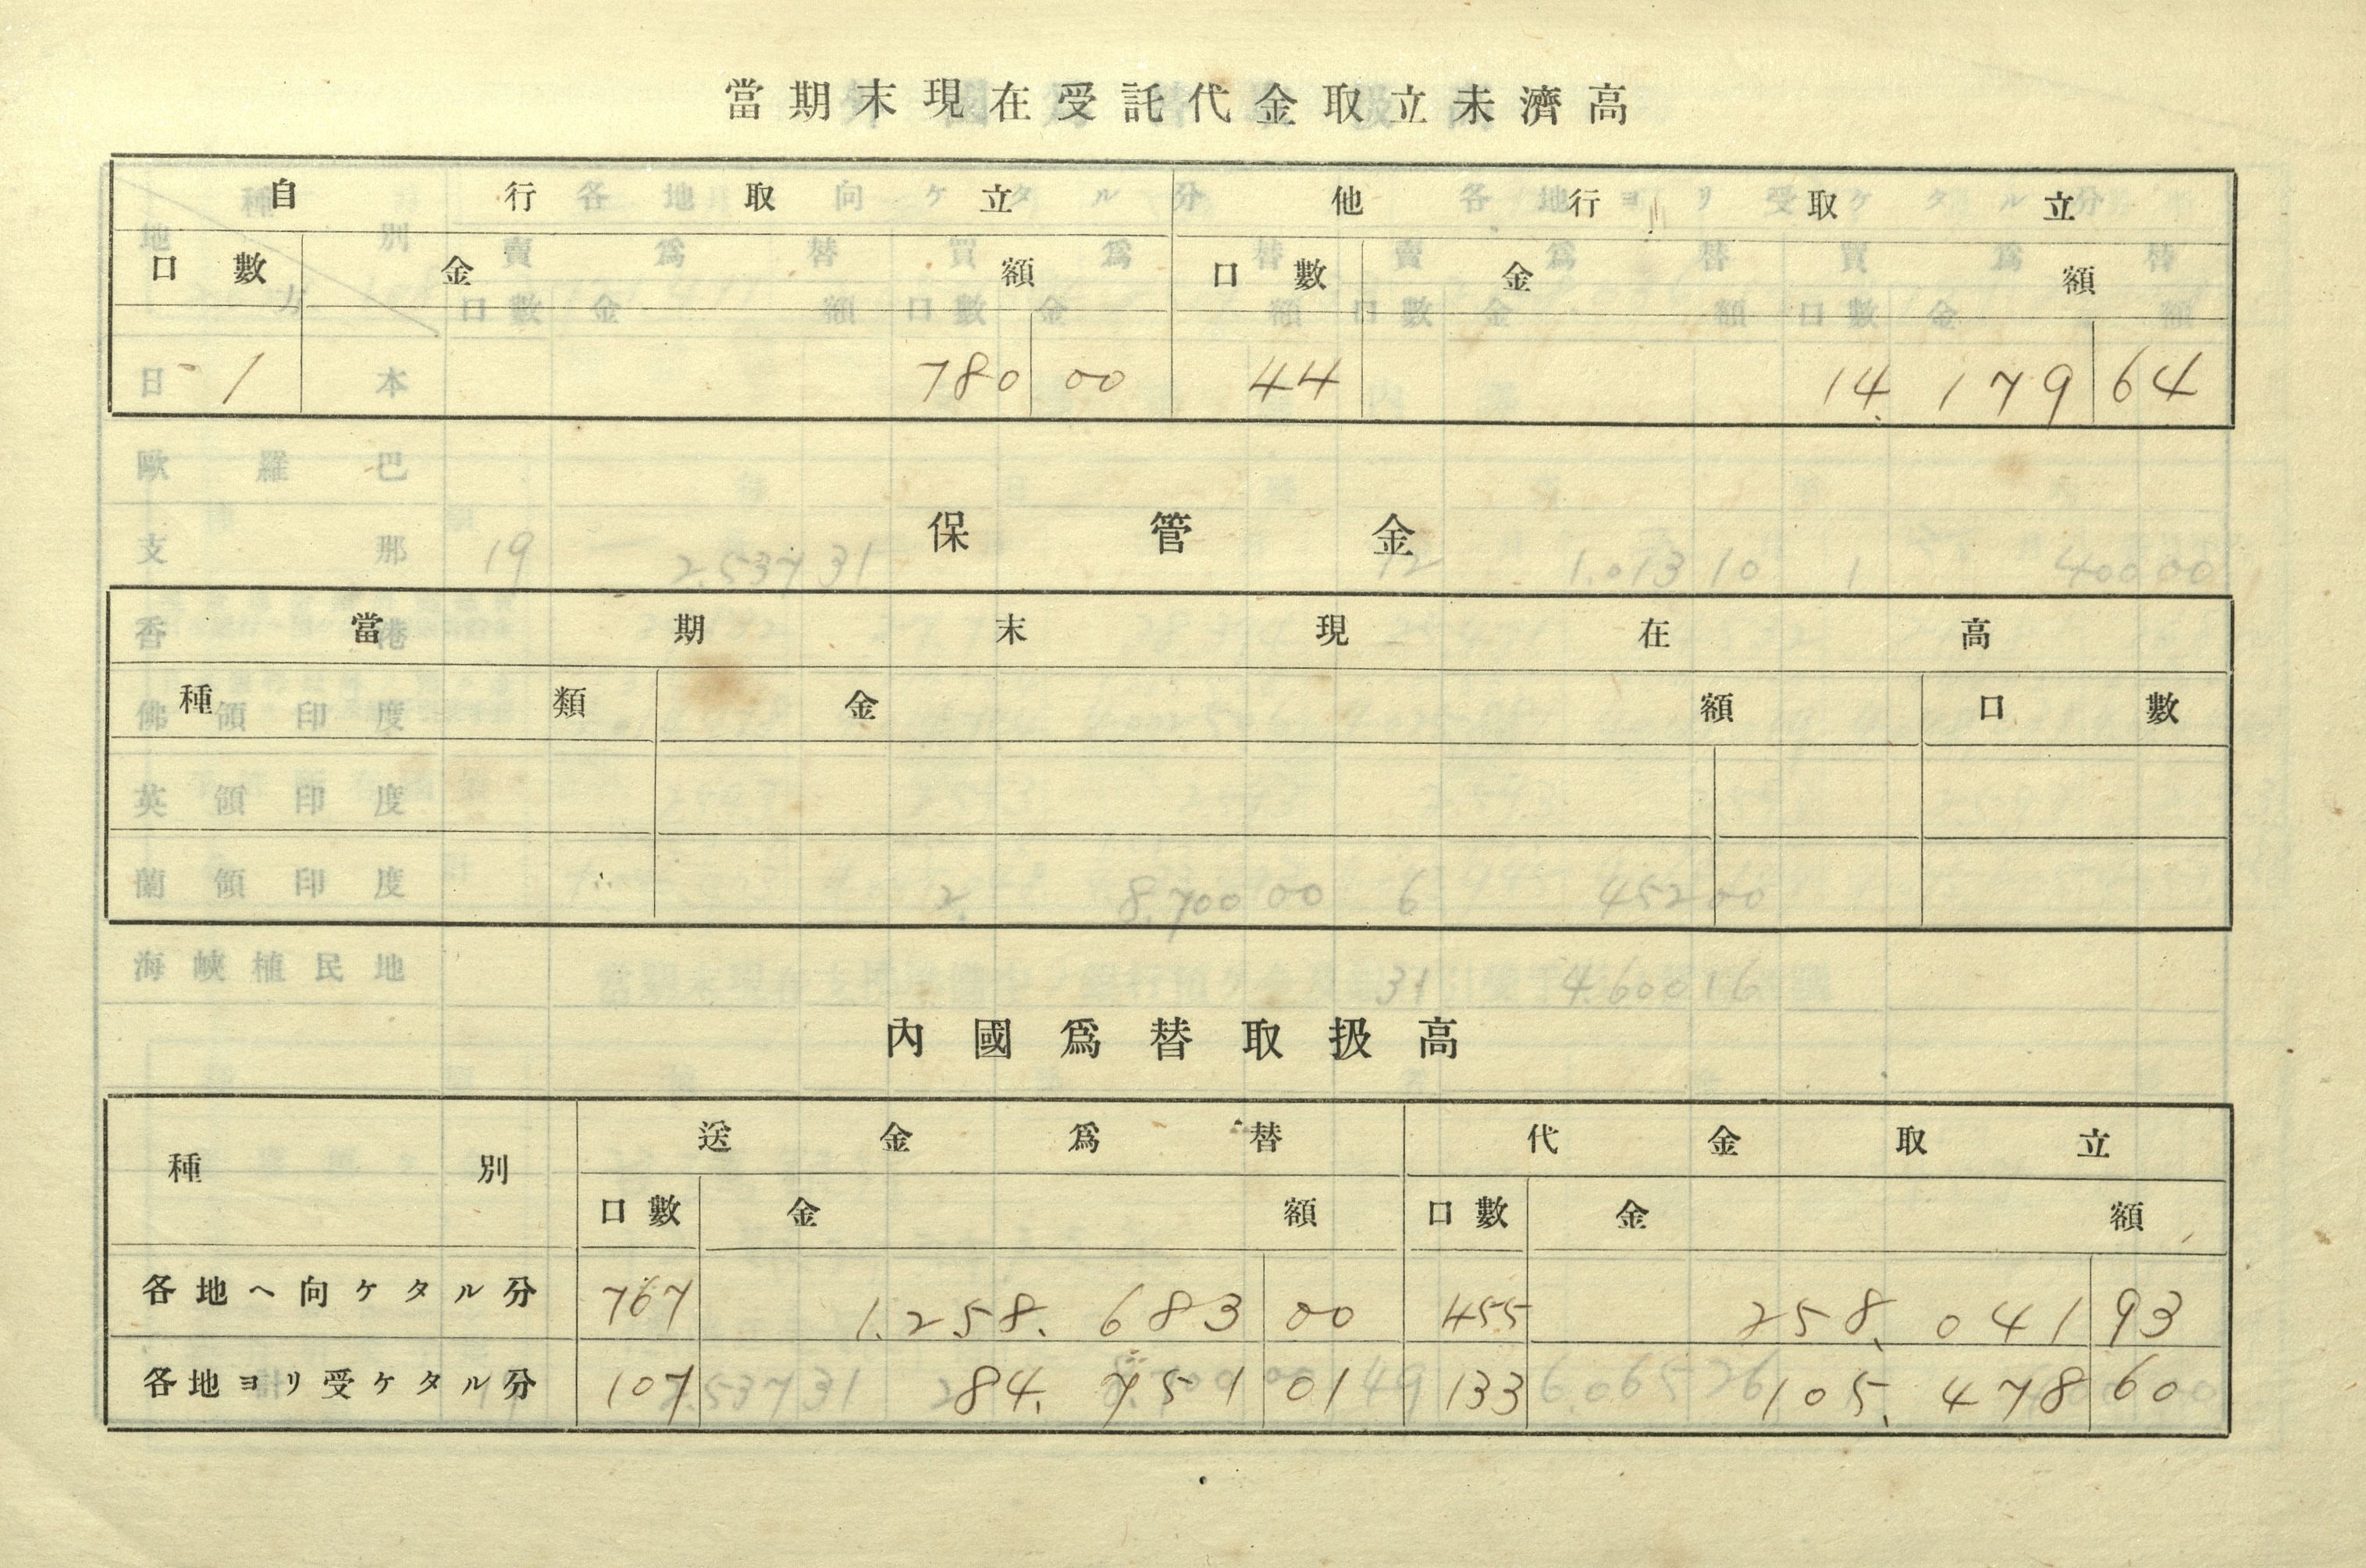 當期末現在受託代金取立未濟高
自行取立 他行取立
口數 金額 口數 金額
1 780 00 44 14.179 64
保管金
當期末現在高
種類 金額 口數
內國爲替取扱高
種別 送金爲替 代金取立
口數 金額 口數 金額
各地ヘ向ケタル分 767 1.258.683 00 455 258.041 93
各地ヨリ受ケタル分 107 84.751 01 133 105.478 60